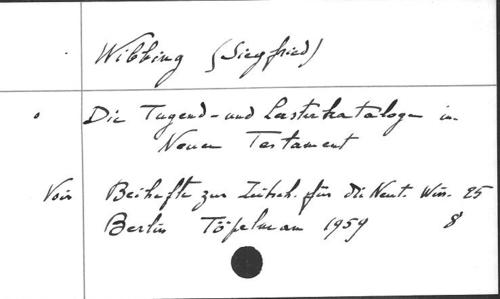 Wibbing (Siegfried)
Die Tugend- und Lasterkataloge im
Neuen Testament
Voir Beihefte zur Zeitsch. für die Neut. Wiss. 25
Berlin Töpelmann 1959 8